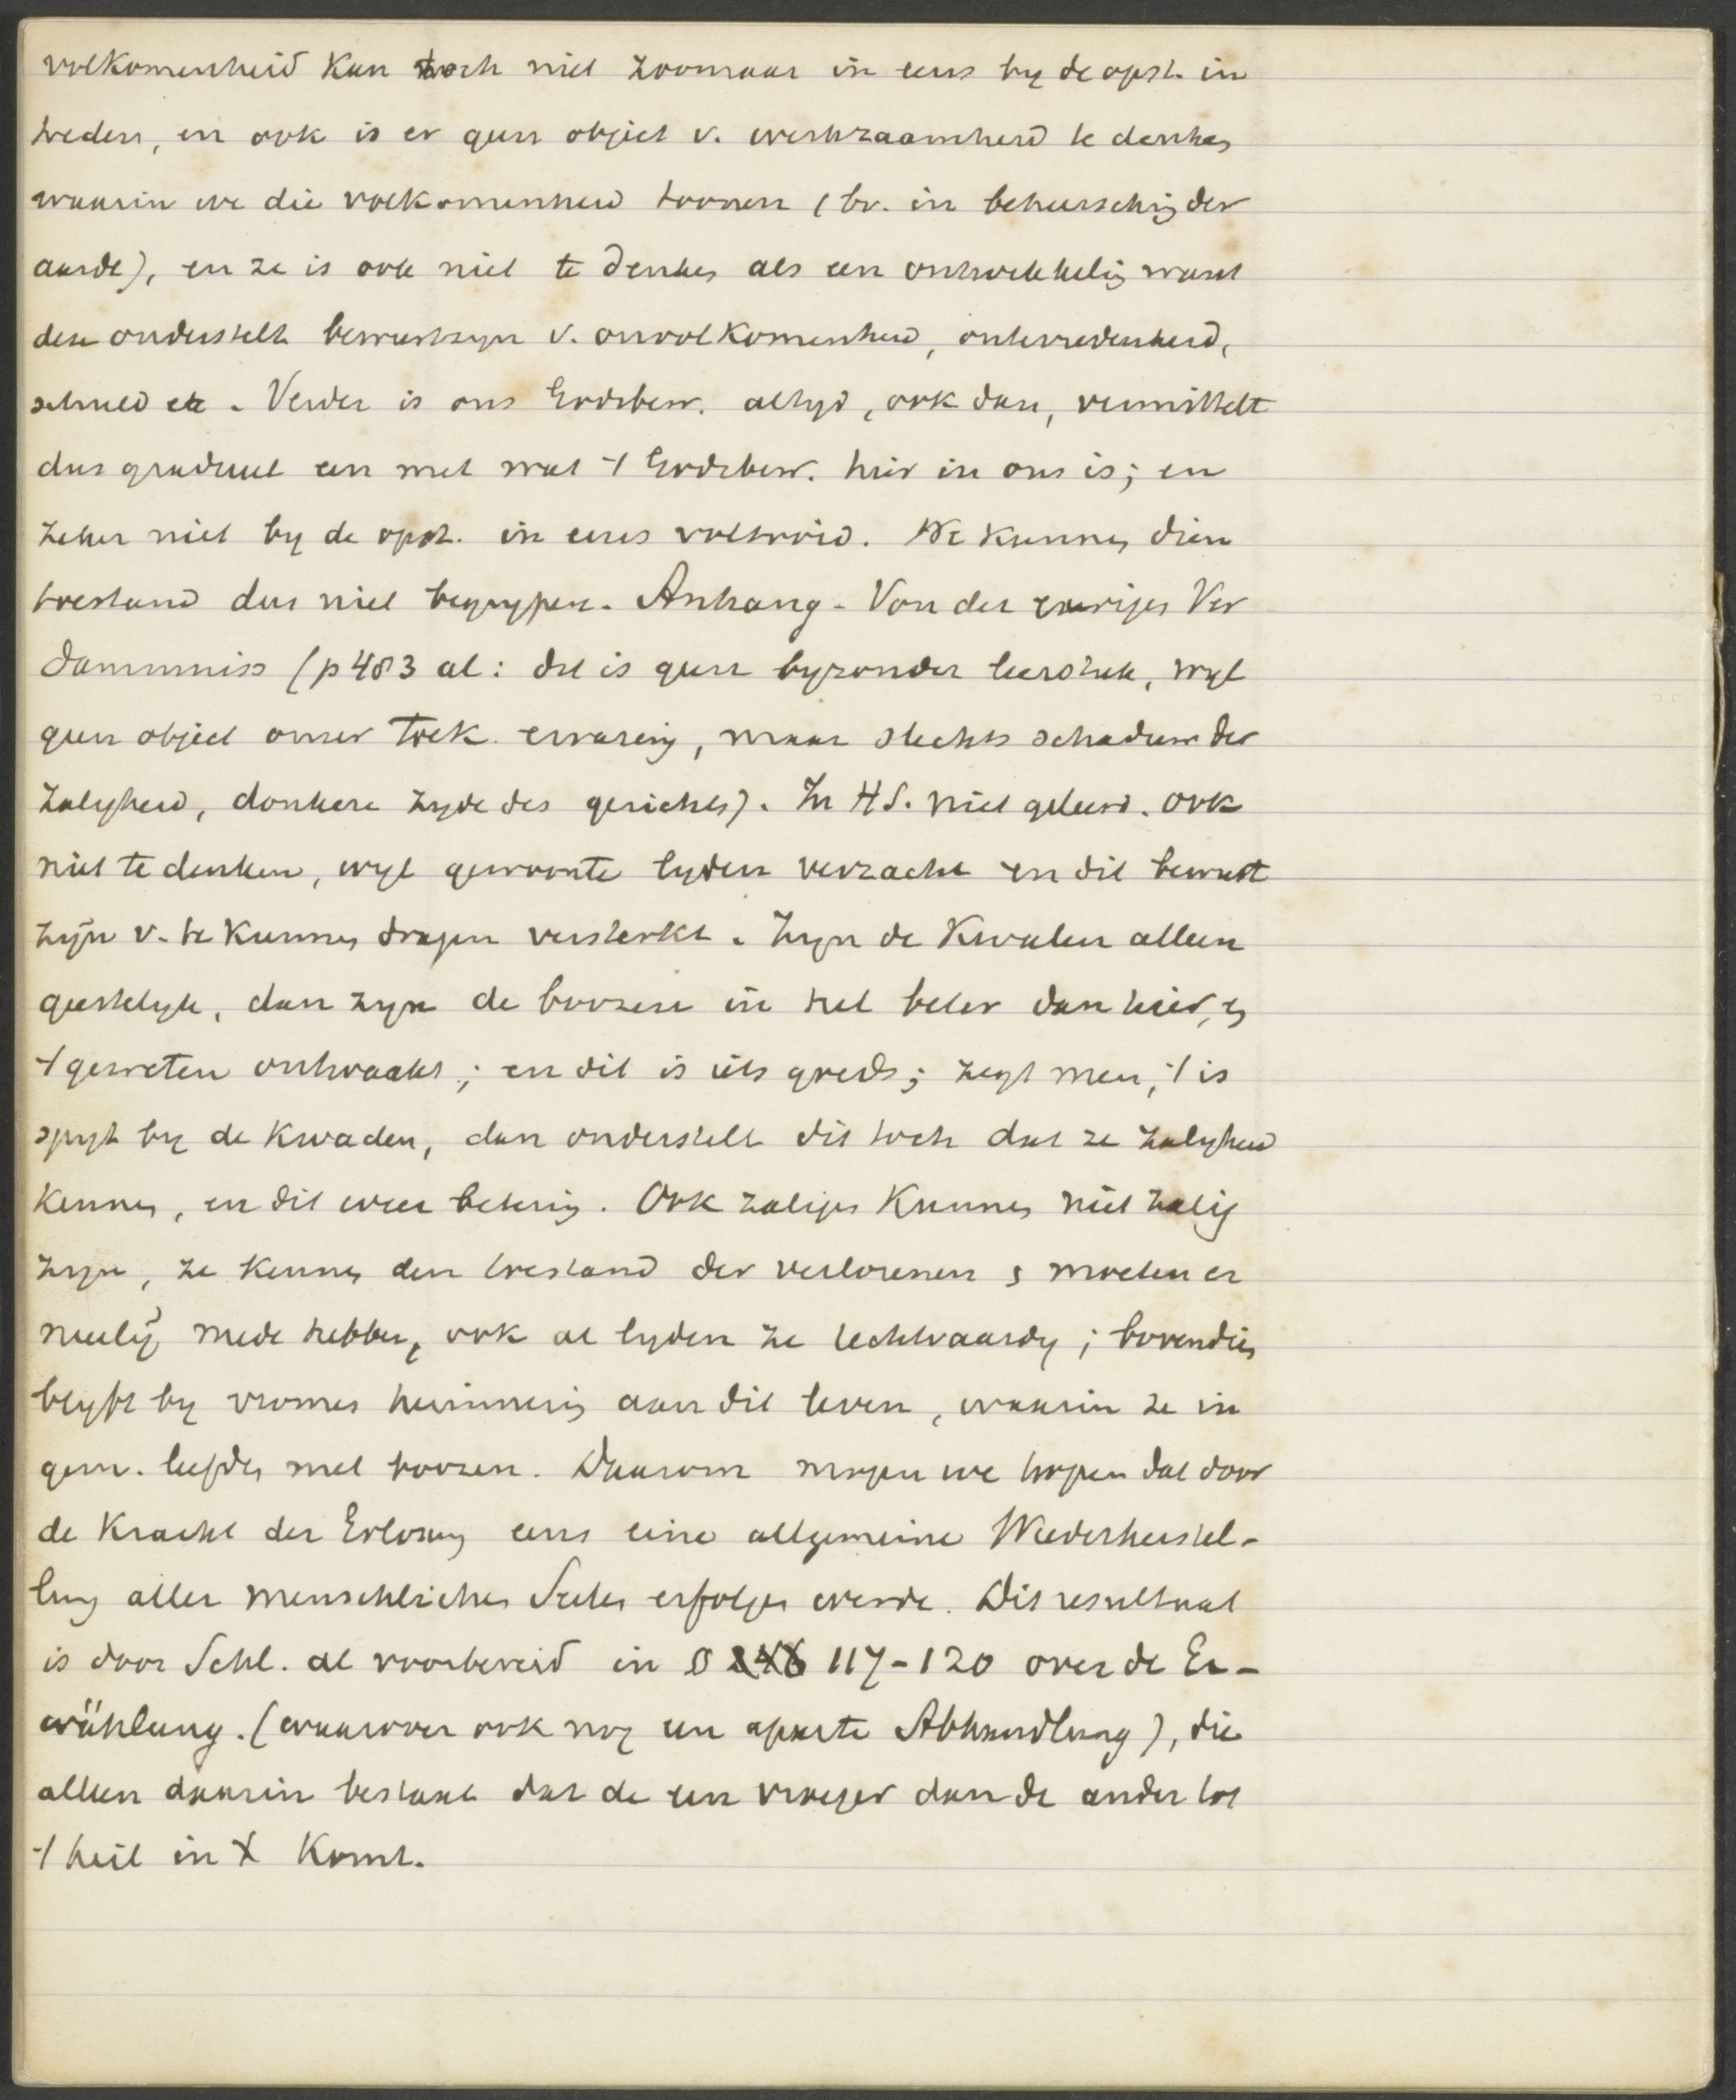 volkomenheid kan toch niet zoomaar in eens by de opst. in
treden, en ook is er geen object v. werkzaamheid te denken
waarin we die volkomenheid toonen (bv. in beheersching der
aarde), en ze is ook niet te denken als een ontwikkeling want
deze onderstelt bewustzyn v. onvolkomenheid, ontevredenheid,
schuld etc. Verder is ons Godsbew. altyd, ook dan, vermittelt
dus gradueel een met wat 't Godsbew. hier in ons is; en
zeker niet by de opst. in eens voltooid. We kunnen dien
toestand dus niet begrypen. Anhang - Von der ewigen Ver
dammniss (p 483 al: dit is geen byzonder leerstuk, wyl
geen object onzer toek. ervaring, maar slechts schaduw der
zaligheid, donkere zyde des gerichts). In HS. niet geleerd. Ook
niet te denken, wyl gewoonte lyden verzacht en dit bewust
zijn v. te kunnen dragen versterkt. Zyn de kwalen alleen
geestelyk, dan zyn de boozen in hel beter dan hier, en
't geweten ontwaakt; en dit is iets goeds; zegt men, 't is
spyt by de kwaden, dan onderstelt dit toch dat ze zaligheid
kennen, en dit weer betering. Ook zaligen kunnen niet zalig
zyn, ze kennen den toestand der verlorenen & moeten er
meelij mede hebben, ook al lyden ze rechtvaardig; bovendien
blyft by vromen herinnering aan dit leven, waarin ze in
gem. leefden met boozen. Daarom mogen we hopen dat door
de Kracht der Erlösung eens eine allgemeine Wiederherstel-
lung aller menschlichen Seelen erfolgen werde. Dit resultaat
is door Schl. al voorbereid in § 117-120 over de Er-
wählung. (waarover ook nog een aparte Abhandlung), die
alleen daarin bestaat dat de een vroeger dan de ander tot
't heil in X komt.